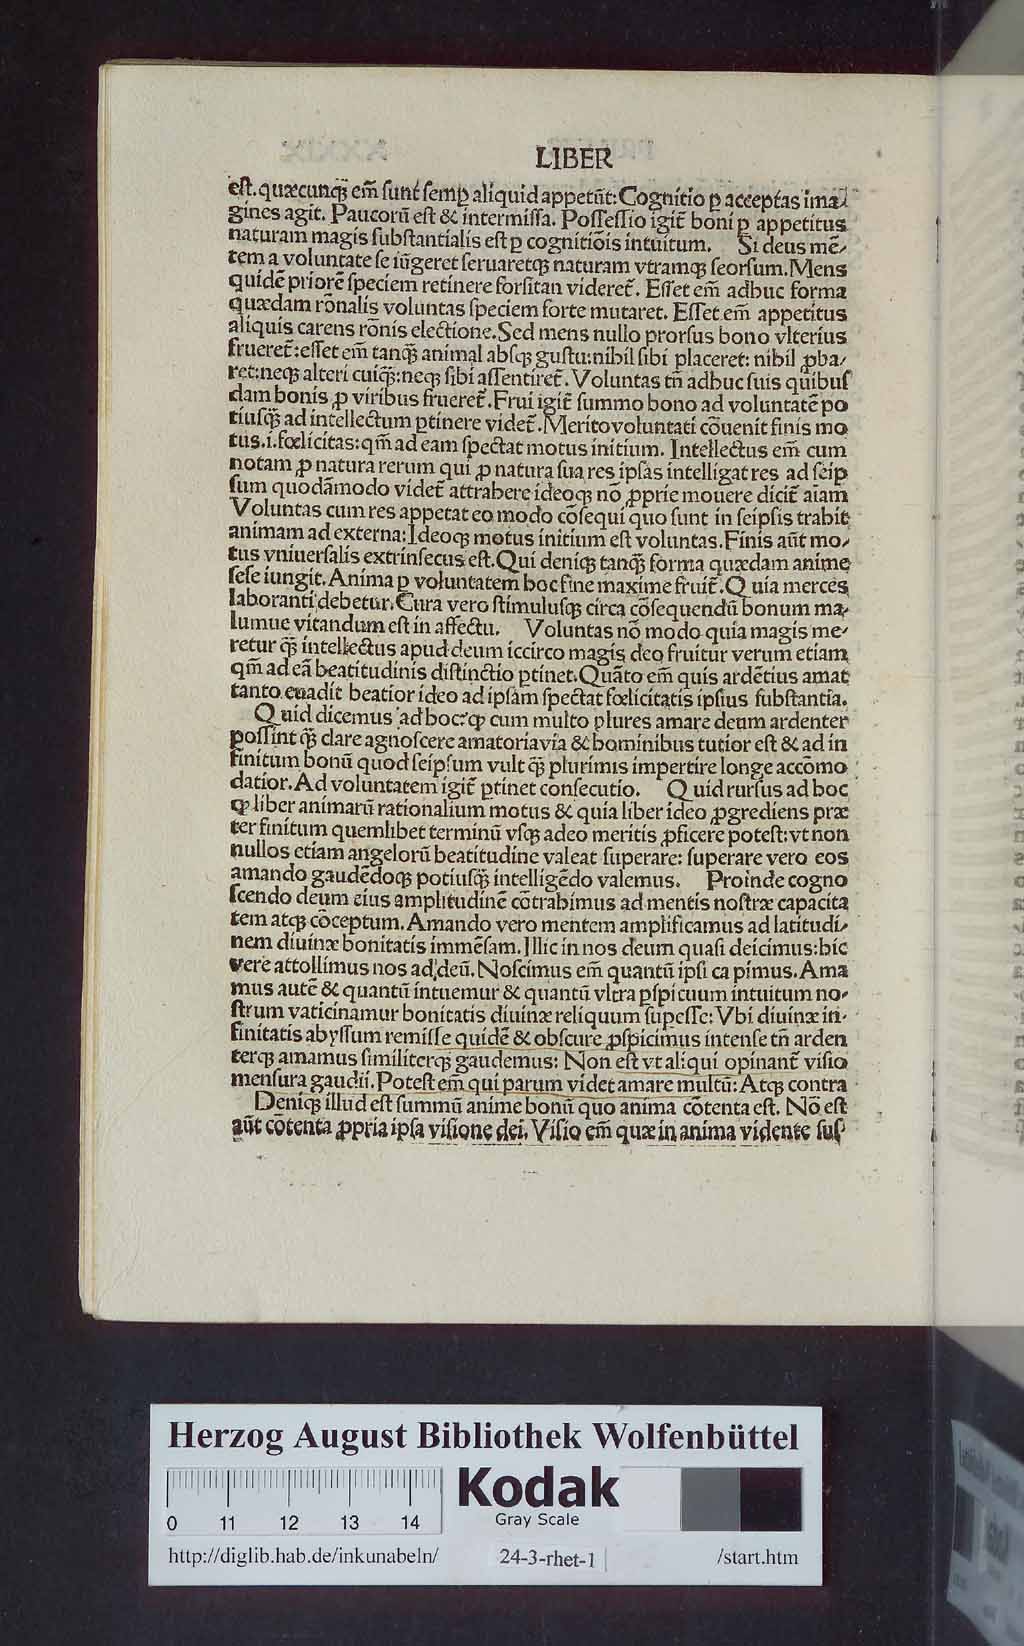 LIBER
est. quæcunqꝫ em̄ sunt semꝑ aliquid appetūt: Cognitio ꝑ acceptas ima/
gines agit. Paucorū est & intermissa. Possessio igit̄ boni ꝑ appetitus
naturam magis substantialis est ꝑ cognitiōis intuitum. Si deus mē/
tem a voluntate seiūgeret seruaretqꝫ naturam vtramqꝫ seorsum. Mens
quidē priorē speciem retinere forsitan videret̄. Esset em̄ adhuc forma
quædam rōnalis voluntas speciem forte mutaret. Esset em̄ appetitus
aliquis carens rōnis electione. Sed mens nullo prorsus bono vlterius
frueret̄: esset em̄ tanqꝫ̄ animal absqꝫ gustu: nihil sibi placeret: nihil ꝓba/
ret: neqꝫ alteri cuiqꝫ̄: neqꝫ sibi assentiret̄. Voluntas tn̄ adhuc suis quibus
dam bonis ꝓ viribus frueret̄. Frui igit̄ summo bono ad voluntatē po
tiusqꝫ̄ ad intellectum ꝑtinere videt̄. Merito voluntati cōuenit finis mo
tus .i. fœlicitas: qm̄ ad eam spectat motus initium. Intellectus em̄ cum
notam ꝓ natura rerum qui ꝓ natura sua res ipsas intelligat res ad seip
sum quodāmodo videt̄ attrahere ideoqꝫ nō ꝓprie mouere dicit̄ aīam
Voluntas cum res appetat eo modo cōsequi quo sunt in seipsis trahit
animam ad externa: Ideoqꝫ motus initium est voluntas. Finis aūt mo/
tus vniuersalis extrinsecus est. Qui deniqꝫ tanqꝫ̄ forma quædam anime
sese iungit. Anima ꝑ voluntatem hoc fine maxime fruit̄. Quia merces
laboranti debetur. Cura vero stimulusqꝫ circa cōsequendū bonum ma/
lumue vitandum est in affectu. Voluntas nō modo quia magis me/
retur qꝫ̄ intellectus apud deum iccirco magis deo fruitur verum etiam
qm̄ ad eā beatitudinis distinctio ꝑtinet. Quāto em̄ quis ardētius amat
tanto euadit beatior ideo ad ipsam spectat fœlicitatis ipsius substantia.
Quid dicemus ad hoc? ꝙ cum multo plures amare deum ardenter
possint qꝫ̄ clare agnoscere amatoria via & hominibus tutior est & ad in
finitum bonū quod seipsum vult qꝫ̄ plurimis impertire longe accōmo
datior. Ad voluntatem igit̄ ꝑtinet consecutio. Quid rursus ad hoc
ꝙ liber animarū rationalium motus & quia liber ideo ꝓgrediens præ
ter finitum quemlibet terminū vsqꝫ adeo meritis ꝓficere potest: vt non
nullos etiam angelorū beatitudine valeat superare: superare vero eos
amando gaudēdoqꝫ potiusqꝫ̄ intelligēdo valemus. Proinde cogno
scendo deum eius amplitudinē cōtrahimus ad mentis nostræ capacita
tem atqꝫ cōceptum. Amando vero mentem amplificamus ad latitudi/
nem diuinæ bonitatis immēsam. Illic in nos deum quasi deicimus: hic
vere attollimus nos ad deū. Noscimus em̄ quantū ipsi capimus. Ama
mus autē & quantū intuemur & quantū vltra ꝑspicuum intuitum no/
strum vaticinamur bonitatis diuinæ reliquum supesse: Vbi diuinæ in/
finitatis abyssum remisse quidē & obscure ꝓspicimus intense tn̄ arden
terqꝫ amamus similiterqꝫ gaudemus: Non est vt aliqui opinant̄ visio
mensura gaudii. Potest em̄ qui parum videt amare multū: Atqꝫ contra
Deniqꝫ illud est summū anime bonū quo anima cōtenta est. Nō est
aūt cōtenta ꝓpria ipsa visione dei. Visio em̄ quæ in anima vidente sus
Herzog August Bibliothek Wolfenbüttel
Kodak
Gray Scale
0 11 12 13 14
http://diglib.hab.de/inkunabeln/ 24-3-rhet-1 /start.htm